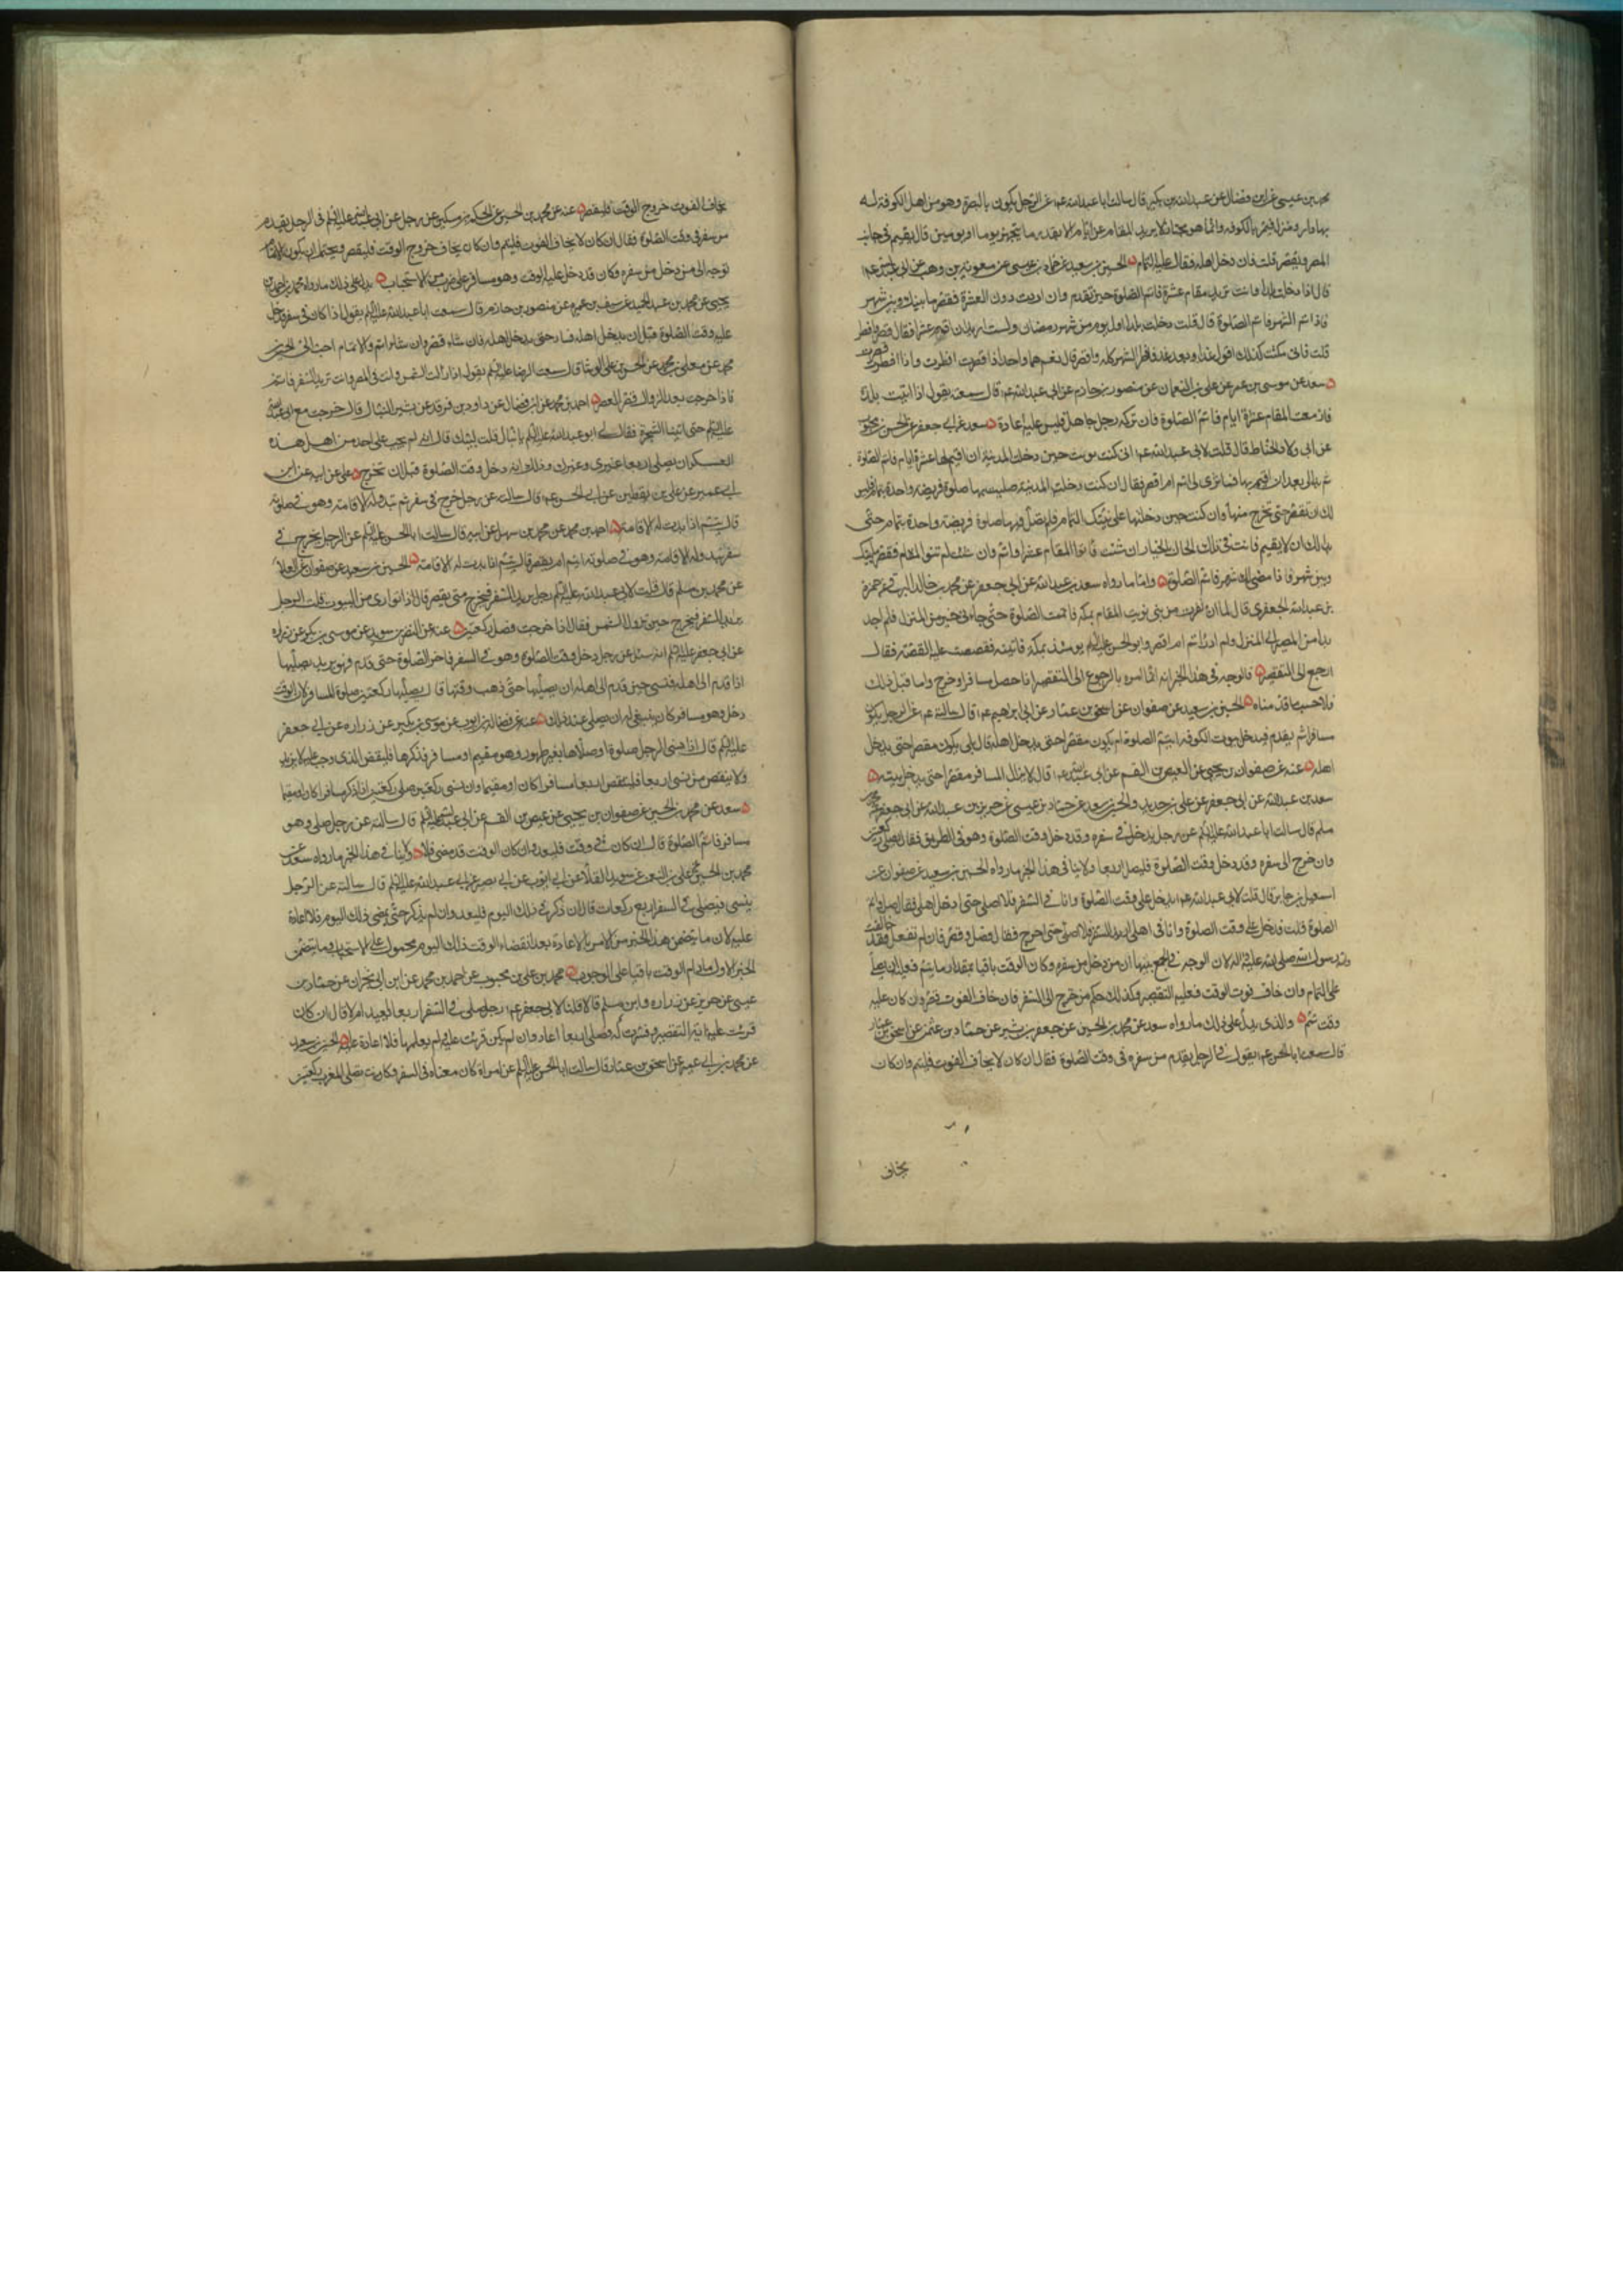 محمد بن عيسى عن ابن فضال عن عبدالله بن بكير قال سالت ابا عبدالله عم عن الرجل يكون بالبصرة وهو من اهل الكوفة له
بها دار ومنزل فيمر بالكوفه وانما هو مجتاز لا يريد المقام عن ايام الا بقدر ما يتجهز يوما او يومين قال يقيم في جانب
المصر ويقصر قلت فان دخل اهله فقال عليه التمام الحسين بن سعيد عن حماد بن عيسى عن معوية بن وهب عن ابي عبدالله عم
قال اذا دخلت بلدا وانت تريد مقام عشرة فاتم الصلوة حين تقدم وان اردت دون العشرة فقصر ما بينك وبين شهر
فاذا تم الشهر فاتم الصلوة قال قلت دخلت بلدا اول يوم من شهر رمضان ولست اريد ان اقيم عشرا فقال قصر وافطر
قلت فاني مكثت كذلك اقول غدا وبعد غد فافطر الشهر كله واقصر قال نعم هما واحد اذا قصرت افطرت واذا افطرت قصرت
سعد عن موسى بن عمر عن علي بن النعمان عن منصور بن حازم عن ابي عبدالله عم قال سمعته يقول اذا اتيت بلدة
فازمعت المقام عشرة ايام فاتم الصلوة فان تركه رجل جاهل فليس عليه اعادة سعد عن ابي جعفر عن الحسن بن محبوب
عن ابي ولاد الحناط قال قلت لابي عبدالله عم اني كنت نويت حين دخلت المدينة ان اقيم بها عشرة ايام فاتم الصلوة
ثم بدا لي بعد ان اقيم بها فما ترى لي اتم ام اقصر فقال ان كنت دخلت المدينة صليت بها صلوة فريضة واحدة بتمام فليس
لك ان تقصر حتى تخرج منها وان كنت حين دخلتها على نيتك التمام فلم تصل فيها صلوة فريضة واحدة بتمام حتى
بدا لك ان لا يقيم فانت في تلك الحال بالخيار ان شئت فانو المقام عشرا واتم وان شئت لم تنو المقام فقصر ما بينك
وبين شهر فاذا مضى لك شهر فاتم الصلوة واما ما رواه سعد بن عبدالله عن ابي جعفر عن محمد بن خالد البرقي عن حمزة
بن عبدالله الجعفري قال لما ان نفرت من منى نويت المقام بمكة فاتممت الصلوة حتى جاءني خبر من المنزل فلم اجد
بدا من المصير الى المنزل ولم ادر اتم ام اقصر وابو الحسن عليه السلام يومئذ بمكة فاتيته فقصصت عليه القصة فقال
ارجع الى التقصير فالوجه في هذا الخبر انه انما امره بالرجوع الى التقصير اذا حصل مسافرا وخرج واما قبل ذلك
فلا حسب ما قدمناه الحسين بن سعيد عن صفوان عن اسحق بن عمار عن ابي ابرهيم عم قال سالته عن الرجل يكون
مسافرا ثم يقدم فيدخل بيوت الكوفه ايتم الصلوة ام يكون مقصرا حتى يدخل اهله قال بلى يكون مقصرا حتى يدخل
اهله عنه عن صفوان بن يحيى عن العيص بن القسم عن ابي عبدالله عم قال لا يزال المسافر مقصرا حتى يدخل بيته
سعد بن عبدالله عن ابي جعفر عن علي بن حديد والحسين بن سعيد عن حماد بن عيسى عن حريز بن عبدالله عن ابي جعفر محمد
مسلم قال سالت ابا عبدالله عليه السلام عن رجل يدخل في سفره وقد دخل وقت الصلوة وهو في الطريق فقال يصلي ركعتين
وان خرج الى سفره وقد دخل وقت الصلوة فليصل اربعا ولا ينافي هذا الخبر ما رواه الحسين بن سعيد عن صفوان عن
اسمعيل بن جابر قال قلت لابي عبدالله عم يدخل علي وقت الصلوة وانا في السفر فلا اصلي حتى ادخل اهلي فقال صل واتم
الصلوة قلت فدخل علي وقت الصلوة وانا في اهلي اريد السفر فلا اصلي حتى اخرج فقال فصل وقصر فان لم تفعل فقد خالفت
والله رسول الله صلى الله عليه واله لان الوجه في الجمع بينهما ان من دخل من سفره وكان الوقت باقيا بمقدار ما يتم فعليه ان يصلي
على التمام وان خاف فوت الوقت فعليه التقصير وكذلك حكم من خرج الى السفر فان خاف الفوت قصر وان كان عليه
وقت تمم والذي يدل على ذلك ما رواه سعد عن محمد بن الحسين عن جعفر بن بشير عن حماد بن عثمن عن اسحق بن عمار
قال سمعت ابا الحسن عم يقول في الرجل يقدم من سفره في وقت الصلوة فقال ان كان لا يخاف الفوت فليتم وان كان
يخاف
يخاف الفوت خروج الوقت فليقصر عنه عن محمد بن الحسين عن الحكم بن مسكين عن رجل عن ابي عبدالله عليه السلام في الرجل يقدم
من سفر في وقت الصلوة فقال ان كان لا يخاف الفوت فليتم وان كان يخاف خروج الوقت فليقصر ويحتمل ان يكون الاتمام
توجه الى من دخل من سفره وكان قد دخل عليه الوقت وهو مسافر على ضرب من الاستحباب يدل على ذلك ما رواه محمد بن احمد بن
يحيى عن محمد بن عبد الحميد عن سيف بن عميرة عن منصور بن حازم قال سمعت ابا عبدالله عليه السلام يقول اذا كان في سفر فدخل
عليه وقت الصلوة قبل ان يدخل اهله فسار حتى يدخل اهله فان شاء قصر وان شاء اتم والاتمام احب الي الحسين بن
محمد عن معلى بن محمد عن الحسن بن علي الوشا قال سمعت الرضا عليه السلام يقول اذا زالت الشمس وانت في المصر وانت تريد السفر فاتم
فاذا خرجت بعد الزوال فقصر العصر احمد بن محمد عن ابن فضال عن داود بن فرقد عن بشير النبال قال خرجت مع ابي عبدالله
عليه السلام حتى اتينا الشجرة فقال لي ابو عبدالله عليه السلام يا نبال قلت لبيك قال انه لم يجب على احد من اهل هذه
العسكر ان يصلي اربعا غيري وغيرك وذلك انه دخل وقت الصلوة قبل ان نخرج علي عن ابيه عن ابن
ابي عمير عن علي بن يقطين عن ابي الحسن عم قال سالته عن رجل خرج في سفر ثم تبدو له الاقامة وهو في صلوته
قال يتم اذا بدت له الاقامة احمد بن محمد عن محمد بن سهل عن ابيه قال سالت ابا الحسن عليه السلام عن الرجل يخرج في
سفر تبدو له الاقامة وهو في صلوته ايتم ام يقصر قال يتم اذا بدت له الاقامة الحسين بن سعيد عن صفوان عن العلا
عن محمد بن مسلم قال قلت لابي عبدالله عليه السلام رجل يريد السفر فيخرج متى يقصر قال اذا توارى من البيوت قلت الرجل
يريد السفر فيخرج حين تزول الشمس فقال اذا خرجت فصل ركعتين عنه عن النضر بن سويد عن موسى بن بكر عن زرارة
عن ابي جعفر عليه السلام انه سئل عن رجل دخل وقت الصلوة وهو في السفر فاخر الصلوة حتى قدم فهو يريد يصليها
اذا قدم الى اهله فنسي حين قدم الى اهله ان يصليها حتى ذهب وقتها قال يصليها ركعتين صلوة المسافر لان الوقت
دخل وهو مسافر كان ينبغي له ان يصلي عند ذلك عنه عن فضالة بن ايوب عن موسى بن بكير عن زرارة عن ابي جعفر
عليه السلام قال اذا نسي الرجل صلوة او صلاها بغير طهور وهو مقيم او مسافر فذكرها فليقض الذي وجب عليه لا يزيد
ولا ينقص من نسي اربعا فليقض اربعا مسافرا كان او مقيما وان نسي ركعتين صلى ركعتين اذا ذكر مسافرا كان او مقيما
سعد عن محمد بن الحسين عن صفوان بن يحيى عن عيص بن القسم عن ابي عبدالله عليه السلام قال سالته عن رجل صلى وهو
مسافر فاتم الصلوة قال ان كان في وقت فليعد وان كان الوقت قد مضى فلا ولا ينافي هذا الخبر ما رواه سعد عن
محمد بن الحسين عن علي بن النعمن عن سويد القلا عن ابي ايوب عن ابي بصير عن ابي عبدالله عليه السلام قال سالته عن الرجل
ينسى فيصلي في السفر اربع ركعات قال ان ذكر في ذلك اليوم فليعد وان لم يذكر حتى يمضي ذلك اليوم فلا اعادة
عليه لان ما يتضمن هذا الخبر من الامر بالاعادة بعد انقضاء الوقت ذلك اليوم محمول على الاستحباب وما يتضمن
الخبر الاول ما دام الوقت باقيا على الوجوب محمد بن علي بن محبوب عن احمد بن محمد عن ابن ابي نجران عن حماد بن
عيسى عن حريز عن زراره وابن مسلم قالا قلنا لابي جعفر عم رجل صلى في السفر اربعا ايعيد ام لا قال ان كان
قرئت عليه اية التقصير وفسرت له فصلى اربعا اعاد وان لم يكن قرئت عليه ولم يعلمها فلا اعادة عليه الحسين بن سعيد
عن محمد بن ابي عمير عن اسحق بن عمار قال سالت ابا الحسن عليه السلام عن امراة كان معنا في السفر وكانت تصلي المغرب ركعتين